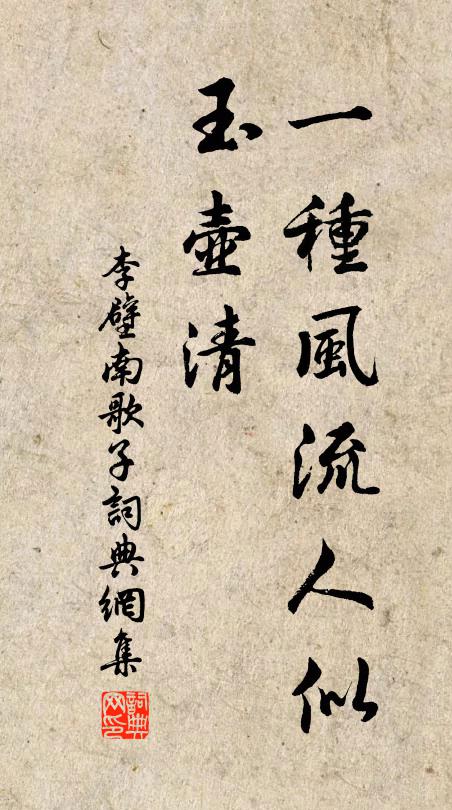 一種風流人似
玉壺清
李壁南歌子詞典網集
詞典
网印